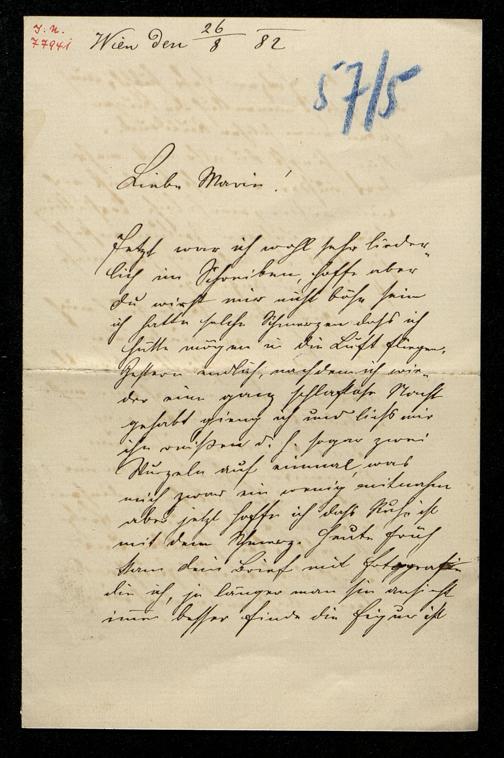 J. N.
77941
Wien den 26/8 82
57/5
Liebe Marie!
Jetzt war ich wohl sehr lieder-
lich im Schreiben, hoffe aber
du wirst mir nicht böse sein
ich hatte solche Schmerzen dass ich
hätte mögen in die Luft fliegen.
Gestern endlich, nachdem ich wie-
der eine ganz schlaflose Nacht
gehabt gieng ich und liess mir
ihn reißen d. h. sogar zwei
Wurzeln auf einmal, was
mich zwar ein wenig mitnahm
aber jetzt hoffe ich dass Ruh ist
mit dem Schmerz. Heute früh
kam dein Brief mit Fotografie
die ich, je länger man sie ansieht
immer besser finde die Figur ist